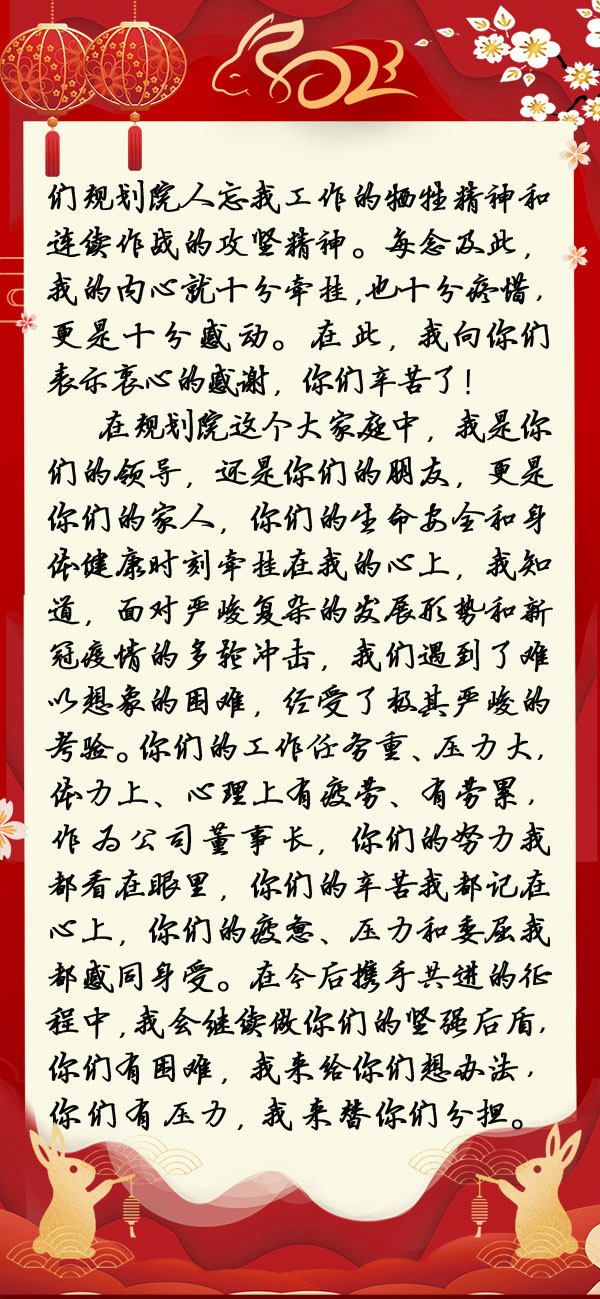 2023
们规划院人忘我工作的牺牲精神和
连续作战的攻坚精神。每念及此，
我的内心就十分牵挂，也十分疼惜，
更是十分感动。在此，我向你们
表示衷心的感谢，你们辛苦了！
在规划院这个大家庭中，我是你
们的领导，还是你们的朋友，更是
你们的家人，你们的生命安全和身
体健康时刻牵挂在我的心上，我知
道，面对严峻复杂的发展形势和新
冠疫情的多轮冲击，我们遇到了难
以想象的困难，经受了极其严峻的
考验。你们的工作任务重、压力大，
体力上、心理上有疲劳、有劳累，
作为公司董事长，你们的努力我
都看在眼里，你们的辛苦我都记在
心上，你们的疲惫、压力和委屈我
都感同身受。在今后携手共进的征
程中，我会继续做你们的坚强后盾，
你们有困难，我来给你们想办法，
你们有压力，我来替你们分担。